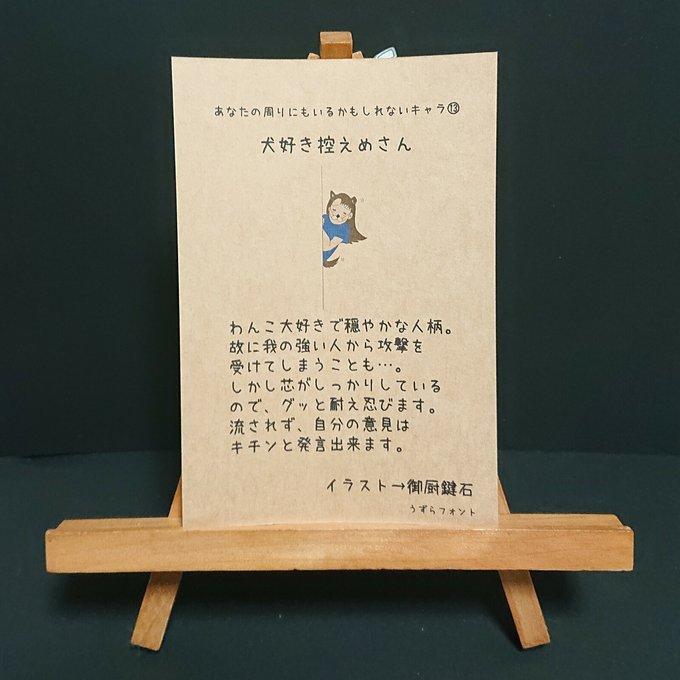 あなたの周りにもいるかもしれないキャラ⑬
犬好き控えめさん
わんこ大好きで穏やかな人柄。
故に我の強い人から攻撃を
受けてしまうことも…。
しかし芯がしっかりしている
ので、グッと耐え忍びます。
流されず、自分の意見は
キチンと発言出来ます。
イラスト→御厨鍵石
うずらフォント